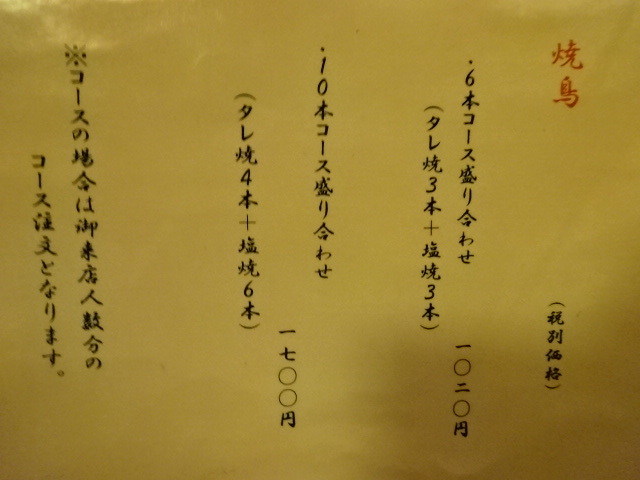 焼鳥
（税別価格）
・6本コース盛り合わせ
（タレ焼3本＋塩焼3本）
一〇二〇円
・10本コース盛り合わせ
（タレ焼4本＋塩焼6本）
一七〇〇円
※コースの場合は御来店人数分の
コース注文となります。